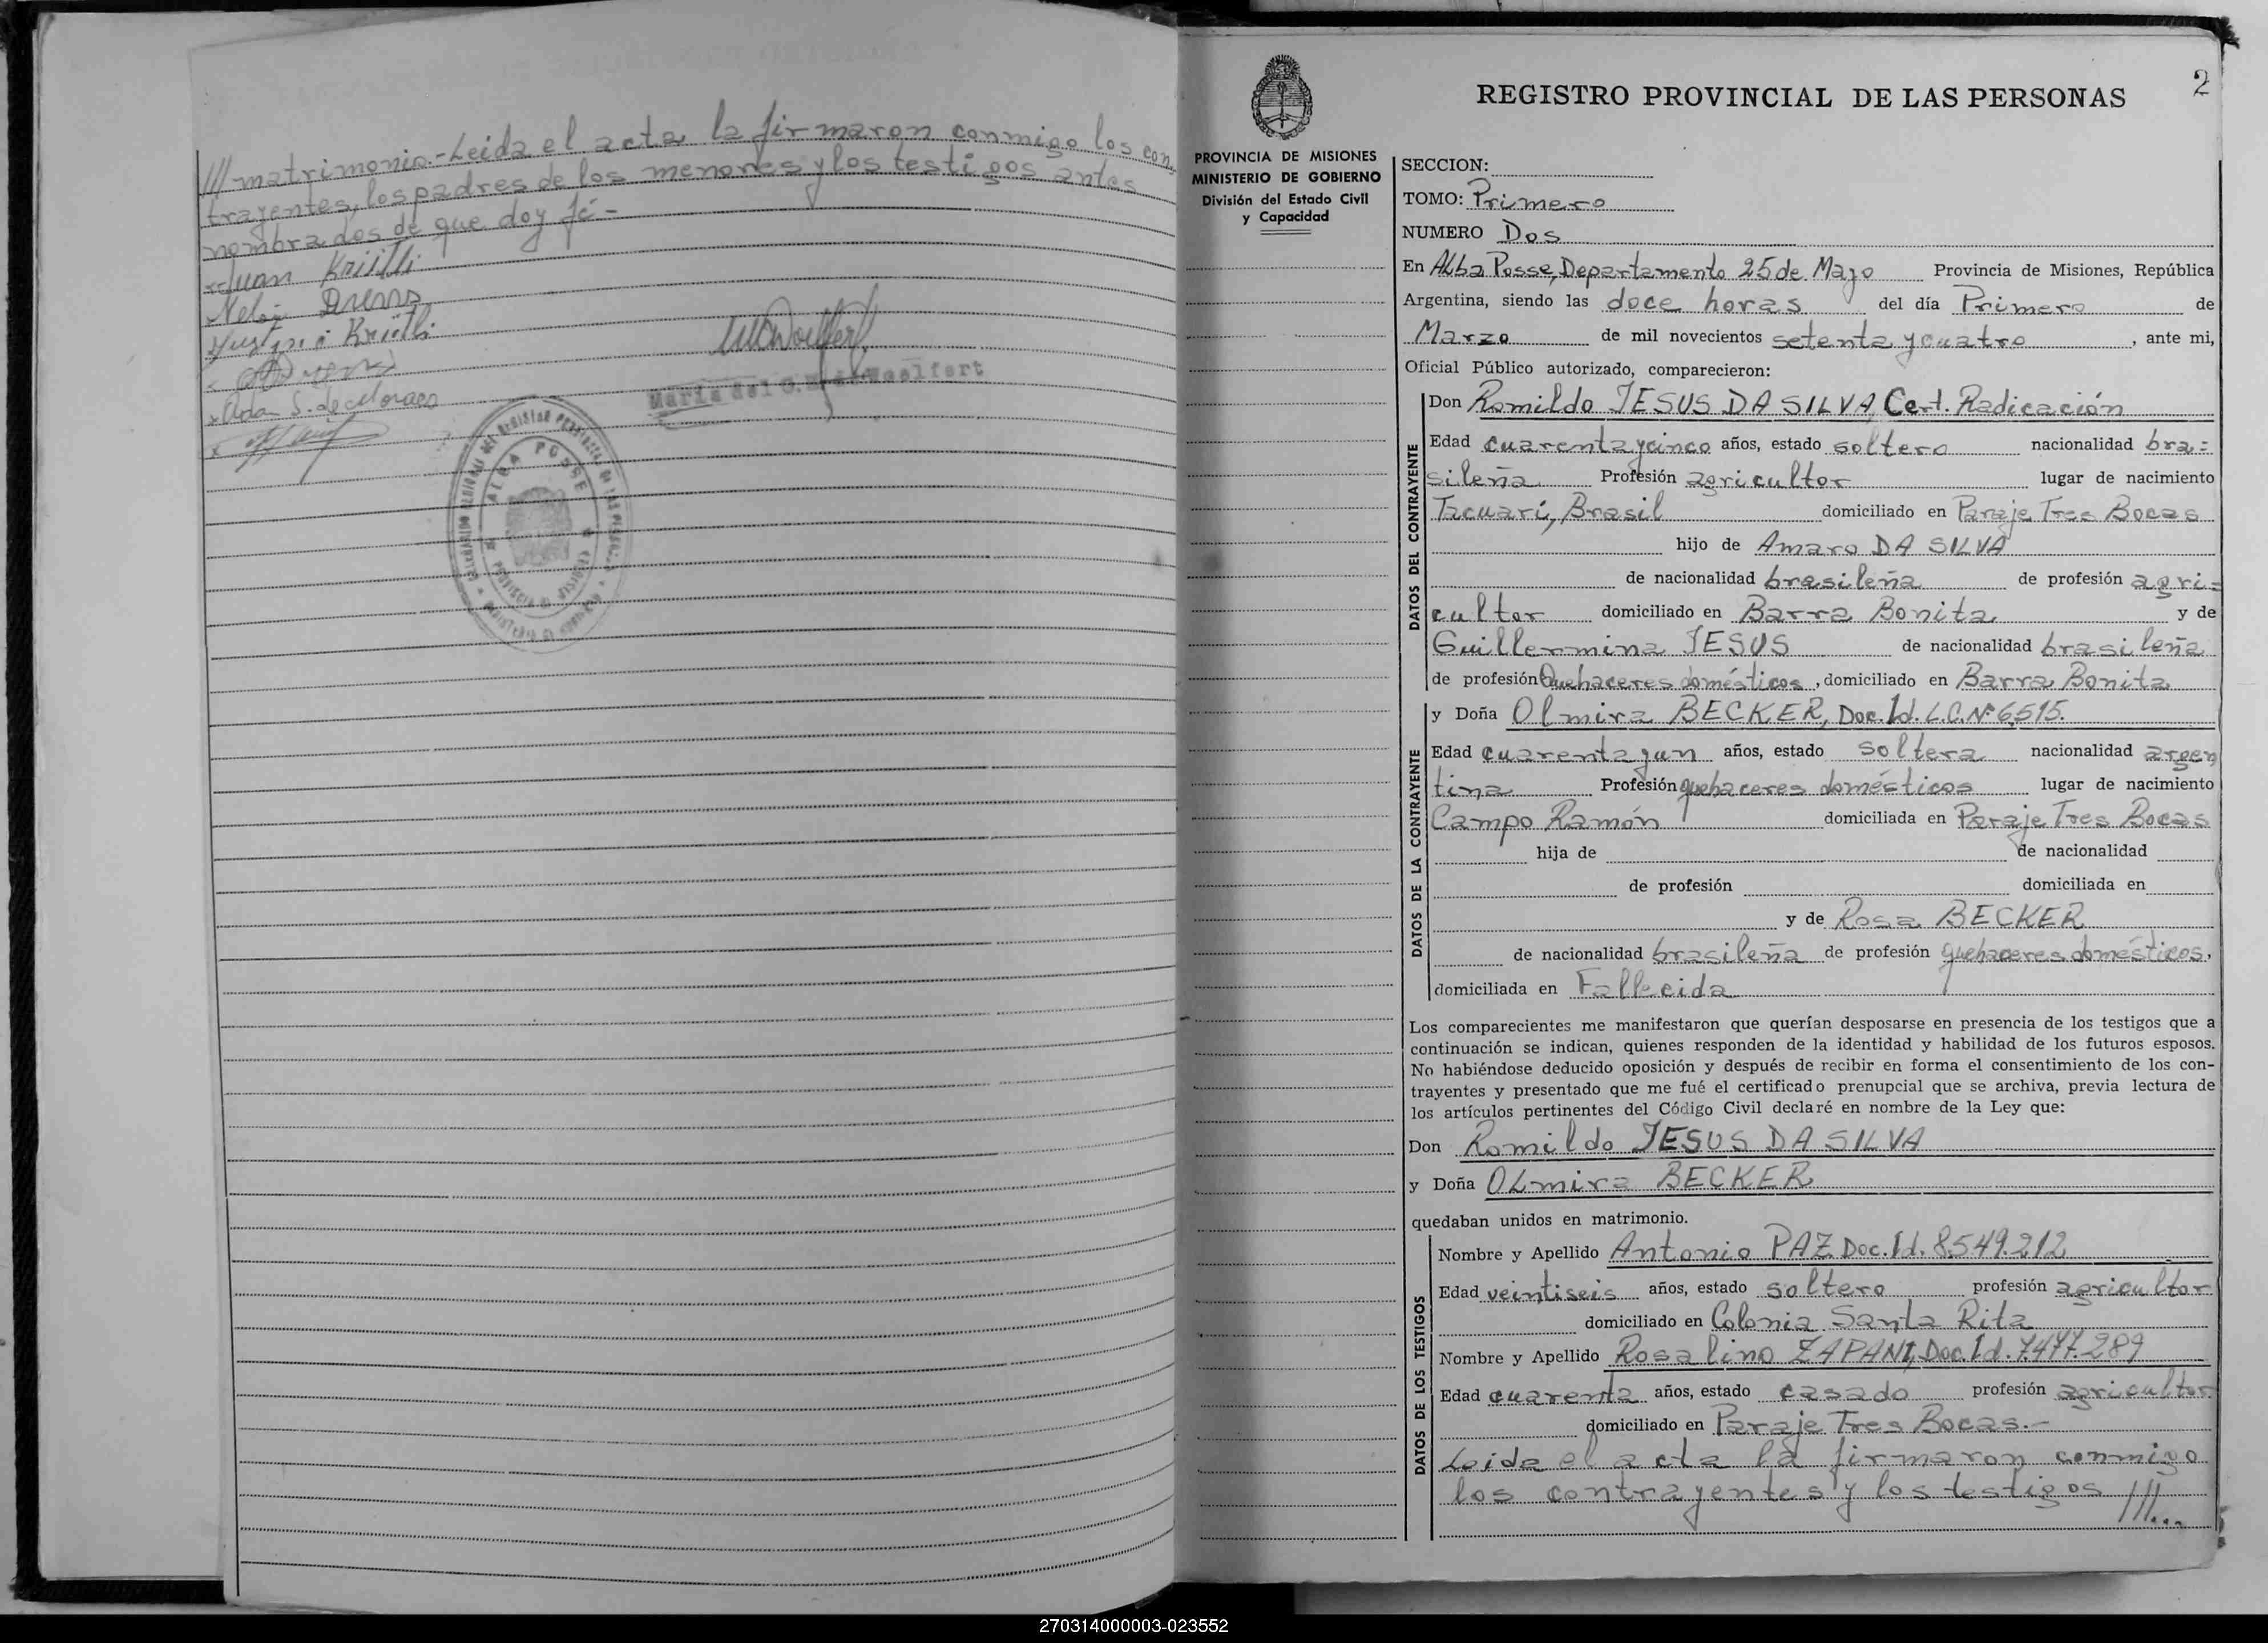 /// matrimonio.- Leida el acta la firmaron conmigo los con
trayentes, los padres de los menores y los testigos antes
nombrados de que doy fé -
Juan
María del C.
ALBA POSSE
2
REGISTRO PROVINCIAL DE LAS PERSONAS
PROVINCIA DE MISIONES
MINISTERIO DE GOBIERNO
División del Estado Civil
y Capacidad
SECCION:
TOMO: Primero
NUMERO Dos
En Alba Posse, Departamento 25 de Mayo Provincia de Misiones, República
Argentina, siendo las doce horas del día Primero de
Marzo de mil novecientos setenta y cuatro, ante mi,
Oficial Público autorizado, comparecieron:
DATOS DEL CONTRAYENTE
Don Romildo JESUS DA SILVA, Cert. Radicación
Edad cuarenta y cinco años, estado soltero nacionalidad bra=
sileña Profesión agricultor lugar de nacimiento
Tacuari, Brasil domiciliado en Paraje Tres Bocas
hijo de Amaro DA SILVA
de nacionalidad brasileña de profesión agri=
cultor domiciliado en Barra Bonita y de
Guillermina JESUS de nacionalidad brasileña
de profesión Quehaceres domésticos, domiciliado en Barra Bonita
DATOS DE LA CONTRAYENTE
y Doña Olmira BECKER, Doc. Id. L.C. Nº 6.515.
Edad cuarenta y un años, estado soltera nacionalidad argen
tina Profesión quehaceres domésticos lugar de nacimiento
Campo Ramón domiciliada en Paraje Tres Bocas
hija de de nacionalidad
de profesión domiciliada en
y de Rosa BECKER
de nacionalidad brasileña de profesión quehaceres domésticos,
domiciliada en Fallecida
Los comparecientes me manifestaron que querían desposarse en presencia de los testigos que a
continuación se indican, quienes responden de la identidad y habilidad de los futuros esposos.
No habiéndose deducido oposición y después de recibir en forma el consentimiento de los con-
trayentes y presentado que me fué el certificado prenupcial que se archiva, previa lectura de
los artículos pertinentes del Código Civil declaré en nombre de la Ley que:
Don Romildo JESUS DA SILVA
y Doña OLmira BECKER
quedaban unidos en matrimonio.
DATOS DE LOS TESTIGOS
Nombre y Apellido Antonio PAZ Doc. Id. 8.549.212
Edad veintiseis años, estado soltero profesión agricultor
domiciliado en Colonia Santa Rita
Nombre y Apellido Rosalino ZAPANI, Doc. Id. 7.477.289
Edad cuarenta años, estado casado profesión agricultor
domiciliado en Paraje Tres Bocas.-
Leida el acta la firmaron conmigo
los contrayentes y los testigos ///...
270314000003-023552